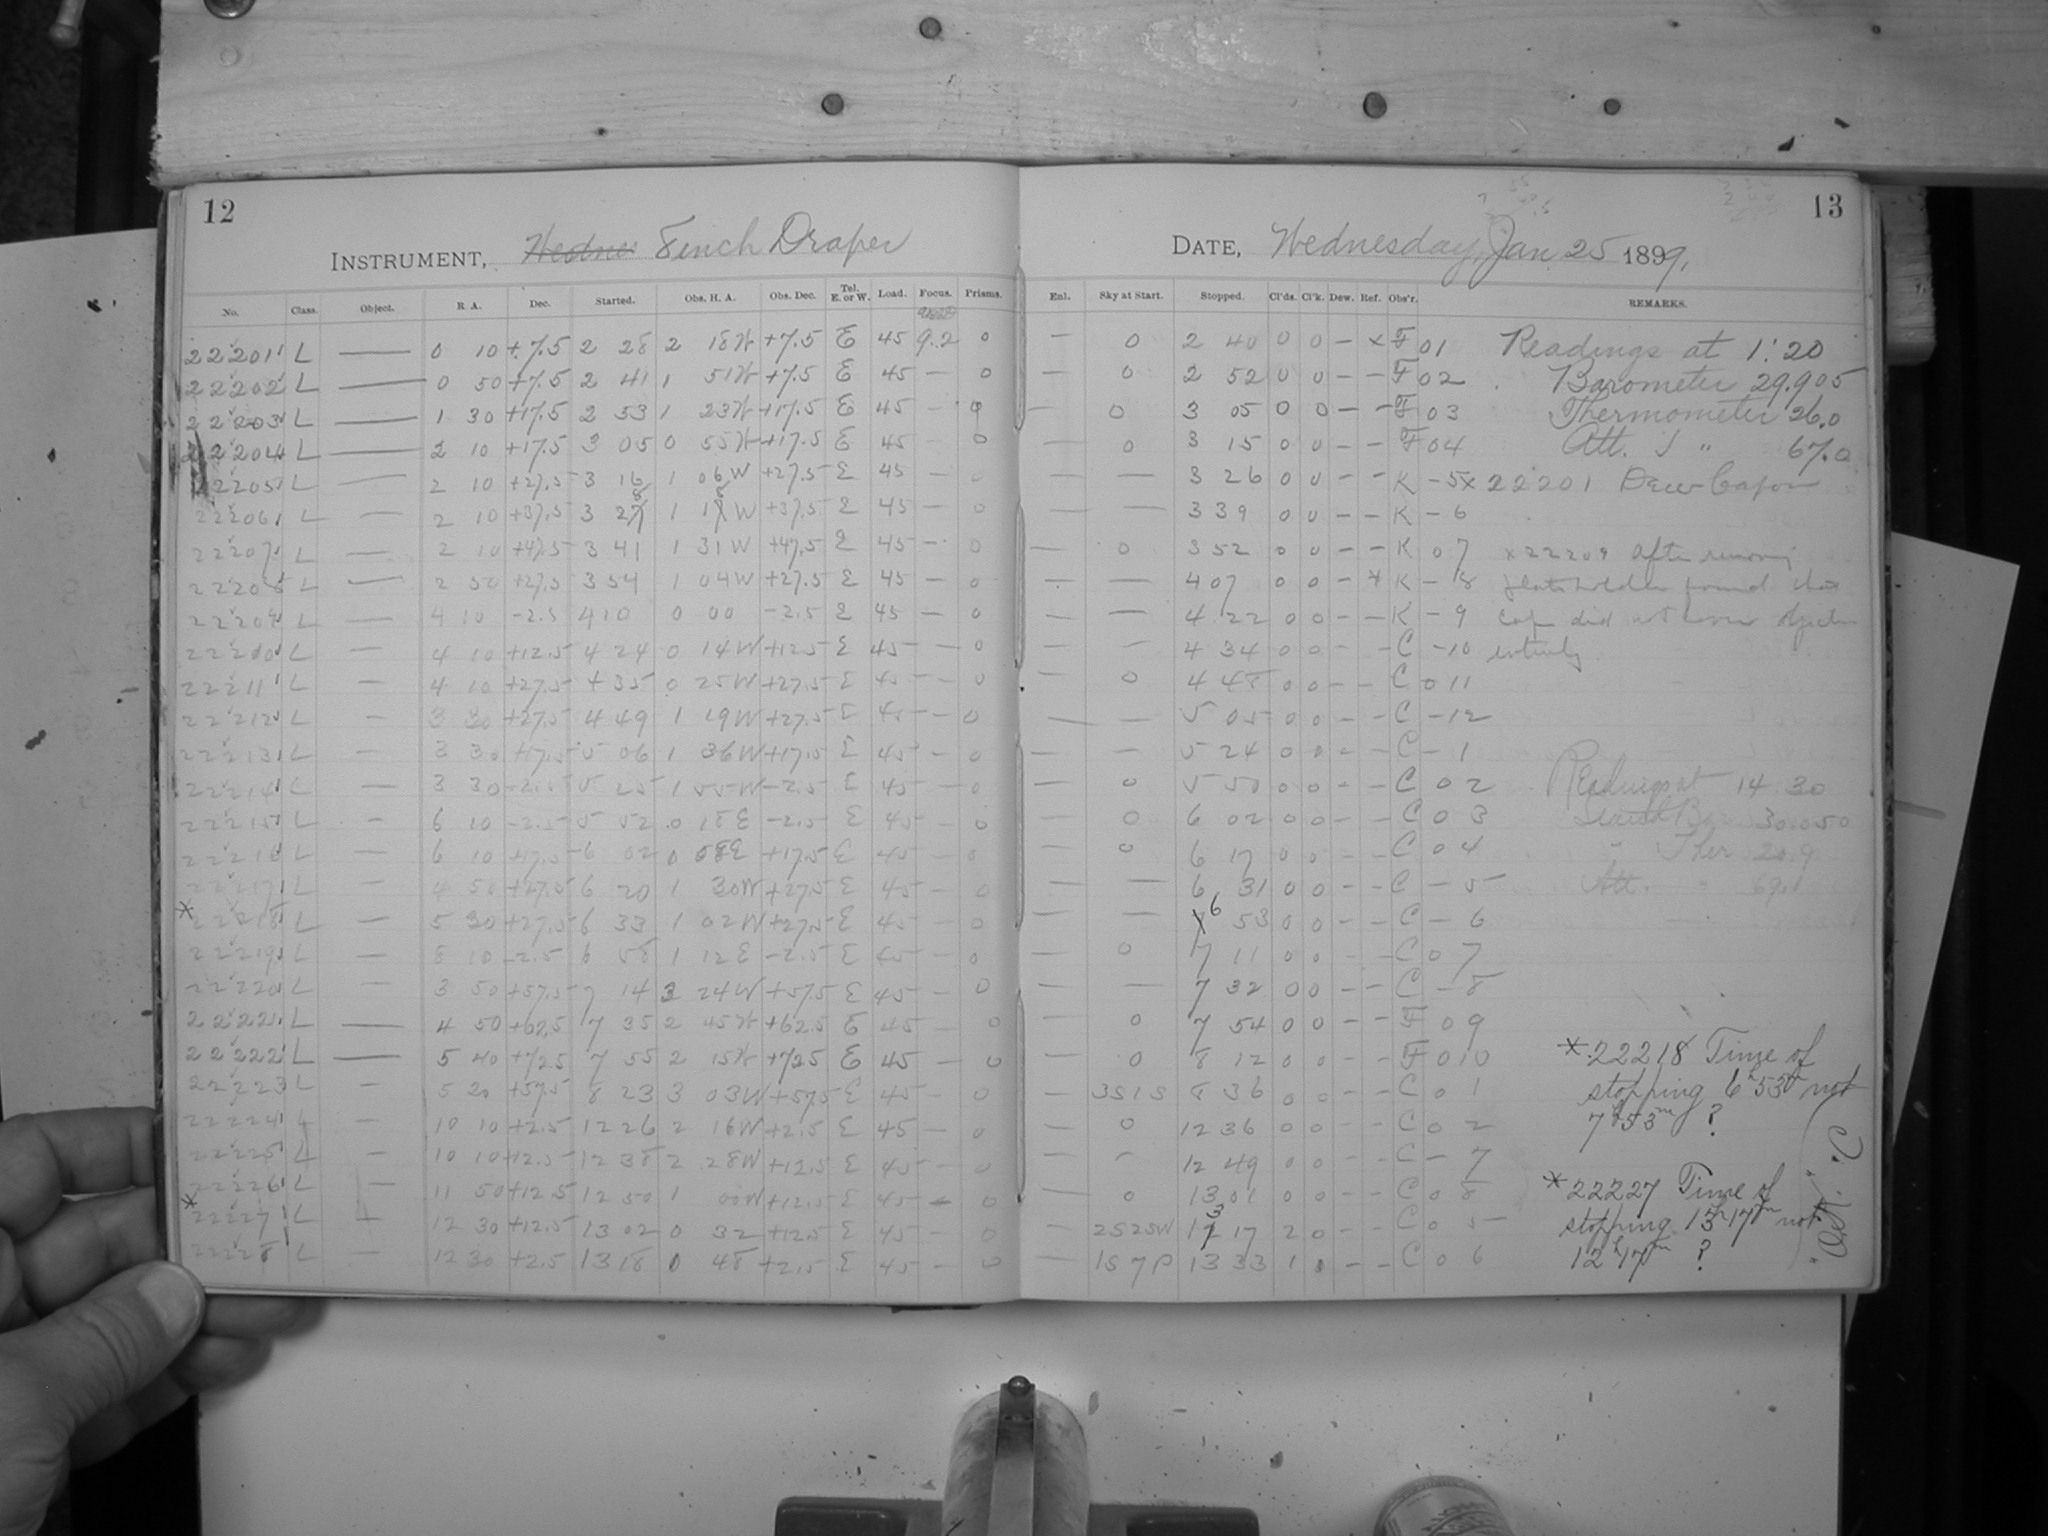 12
INSTRUMENT, Wednes 8 inch Draper
No. Class. Object. R. A. Dec. Started. Obs. H. A. Obs. Dec. Tel. E. or W. Load. Focus. Prisms.
22201 L — 0 10 +7.5 2 28 2 18W +7.5 E 45 9.2 0
22202 L — 0 50 +7.5 2 41 1 51W +7.5 E 45 — 0
22203 L — 1 30 +17.5 2 53 1 23W +17.5 E 45 — 0
22204 L — 2 10 +17.5 3 05 0 55W +17.5 E 45 — 0
22205 L — 2 10 +27.5 3 16 1 06W +27.5 E 45 — 0
22206 L — 2 10 +37.5 3 28 1 18W +37.5 E 45 — 0
22207 L — 2 10 +47.5 3 41 1 31W +47.5 E 45 — 0
22208 L — 2 50 +27.5 3 54 1 04W +27.5 E 45 — 0
22209 L — 4 10 -2.5 4 10 0 00 -2.5 E 45 — 0
22210 L — 4 10 +12.5 4 24 0 14W +12.5 E 45 — 0
22211 L — 4 10 +27.5 4 35 0 25W +27.5 E 45 — 0
22212 L — 3 30 +27.5 4 49 1 19W +27.5 E 45 — 0
22213 L — 3 30 +17.5 5 06 1 36W +17.5 E 45 — 0
22214 L — 3 30 -2.5 5 25 1 55W -2.5 E 45 — 0
22215 L — 6 10 -2.5 5 52 0 18E -2.5 E 45 — 0
22216 L — 6 10 +17.5 6 02 0 08E +17.5 E 45 — 0
22217 L — 4 50 +27.5 6 20 1 30W +27.5 E 45 — 0
* 22218 L — 5 30 +27.5 6 33 1 02W +27.5 E 45 — 0
22219 L — 8 10 -2.5 6 58 1 12E -2.5 E 45 — 0
22220 L — 3 50 +57.5 7 14 3 24W +57.5 E 45 — 0
22221 L — 4 50 +62.5 7 35 2 45W +62.5 E 45 — 0
22222 L — 5 40 +72.5 7 55 2 15W +72.5 E 45 — 0
22223 L — 5 20 +57.5 8 23 3 03W +57.5 E 45 — 0
22224 L — 10 10 +2.5 12 26 2 16W +2.5 E 45 — 0
22225 L — 10 10 +12.5 12 38 2 28W +12.5 E 45 — 0
22226 L — 11 50 +12.5 12 50 1 00W +12.5 E 45 — 0
* 22227 L — 12 30 +12.5 13 02 0 32 +12.5 E 45 — 0
22228 L — 12 30 +2.5 13 18 0 48 +2.5 E 45 — 0
13
DATE, Wednesday, Jan 25 1899.
Enl. Sky at Start. Stopped. Cl'ds. Cl'k. Dew. Ref. Obs'r. REMARKS.
— 0 2 40 0 0 — x F 01 Readings at 1:20
— 0 2 52 0 0 — — F 02 Barometer 29.905
— 0 3 05 0 0 — — F 03 Thermometer 26.0
— 0 3 15 0 0 — — F 04 Att. " 67.0
— — 3 26 0 0 — — K – 5 x 22201 Dew Cap on
— — 3 39 0 0 — — K – 6
— 0 3 52 0 0 — — K 0 7 x 22209 after removing
— — 4 07 0 0 — * K – 8 plateholder found that
— — 4 22 0 0 — — K – 9 cap did not cover objective
— — 4 34 0 0 — — C – 10 entirely
— 0 4 48 0 0 — — C 0 11
— — 5 05 0 0 — — C – 12
— — 5 24 0 0 — — C – 1
— 0 5 50 0 0 — — C 0 2 Readings at 14 30
— 0 6 02 0 0 — — C 0 3 30.050
— 0 6 17 0 0 — — C 0 4 " Ther 20.9
— — 6 31 0 0 — — C – 5 Att. "
— — 7 6 53 0 0 — — C – 6
— 0 7 11 0 0 — — C 0 7
— — 7 32 0 0 — — C – 8
— 0 7 54 0 0 — — F 0 9
— 0 8 12 0 0 — — F 0 10 * 22218 Time of
— 3S1S 8 36 0 0 — — C 0 1 stopping 6h 53m not
— 0 12 36 0 0 — — C 0 2 7h 53m ?
— — 12 49 0 0 — — C – 7
— 0 13 01 0 0 — — C 0 8 * 22227 Time of
— 2S2SW 13 17 2 0 — — C 0 5 stopping 13h 17m not
— 1S7P 13 33 1 0 — — C 0 6 12h 17m ?